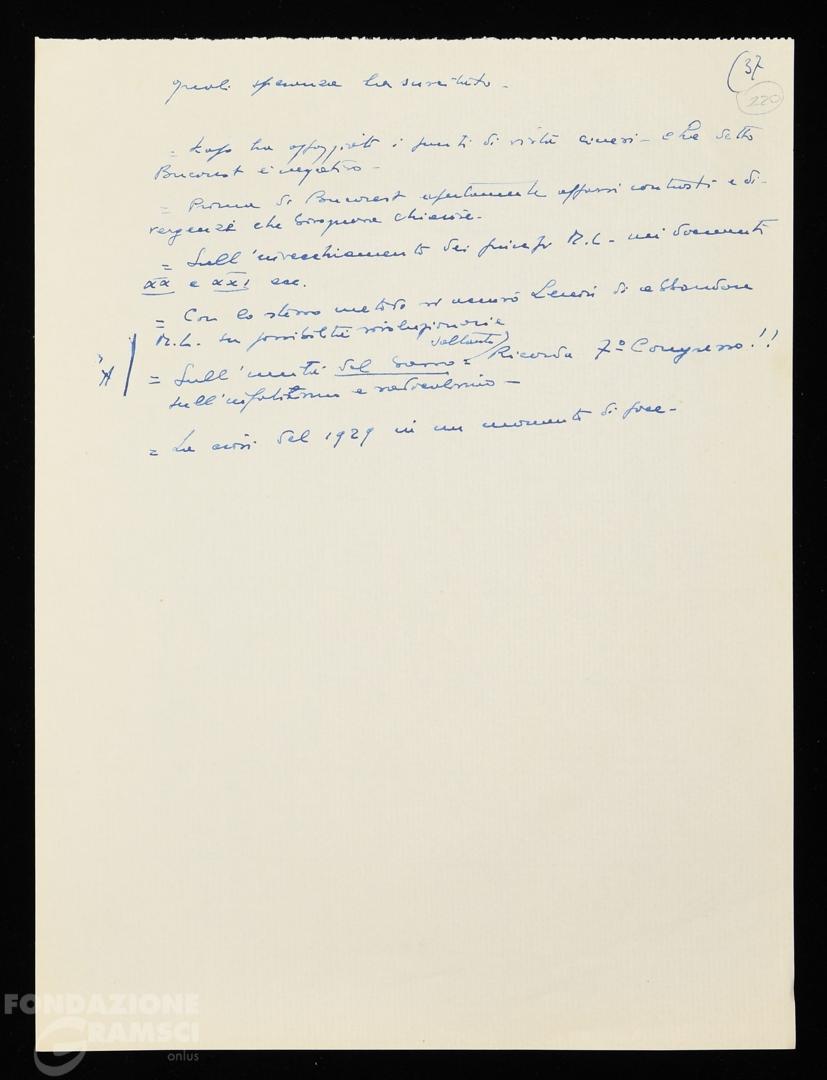 (37
220
quali speranze ha suscitato -
= Kapo ha appoggiato i punti di vista cinesi - e ha detto
Bucarest è negativo -
= Prima di Bucarest apertamente apparsi contrasti e di-
vergenze che bisognava chiarire -
= Sull'invecchiamento dei princìpi M.L. - nei documenti
XX e XXI ecc.
= Con lo stesso metodo si accusò Lenin di abbandonare
M.L. su possibilità rivoluzionarie
= Sull'unità dal basso = soltanto) Ricorda 7° Congresso!!
sull'infantilismo e radicalismo -
= La crisi del 1929 in un momento di pace -
FONDAZIONE
GRAMSCI
onlus